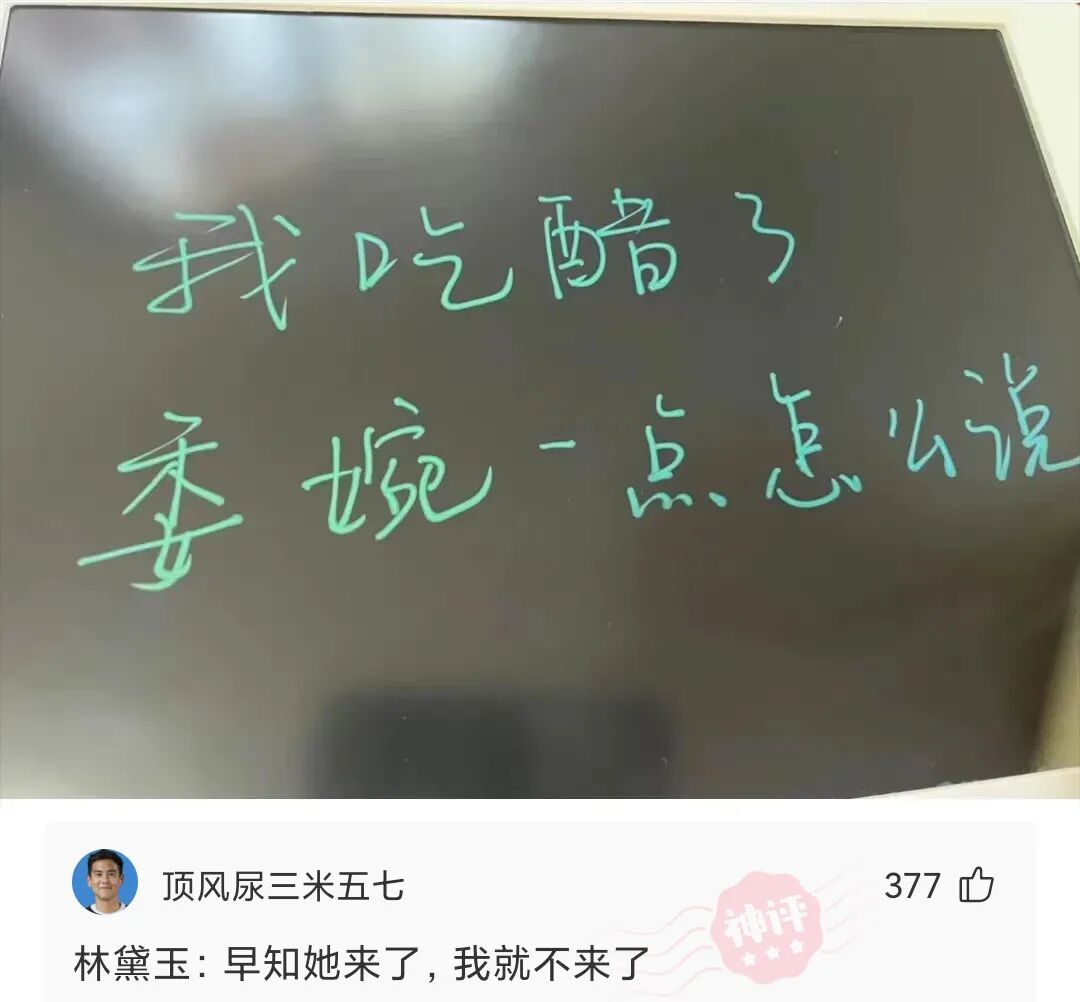 我吃醋了
委婉一点怎么说
顶风尿三米五七
377
神评
林黛玉：早知她来了，我就不来了